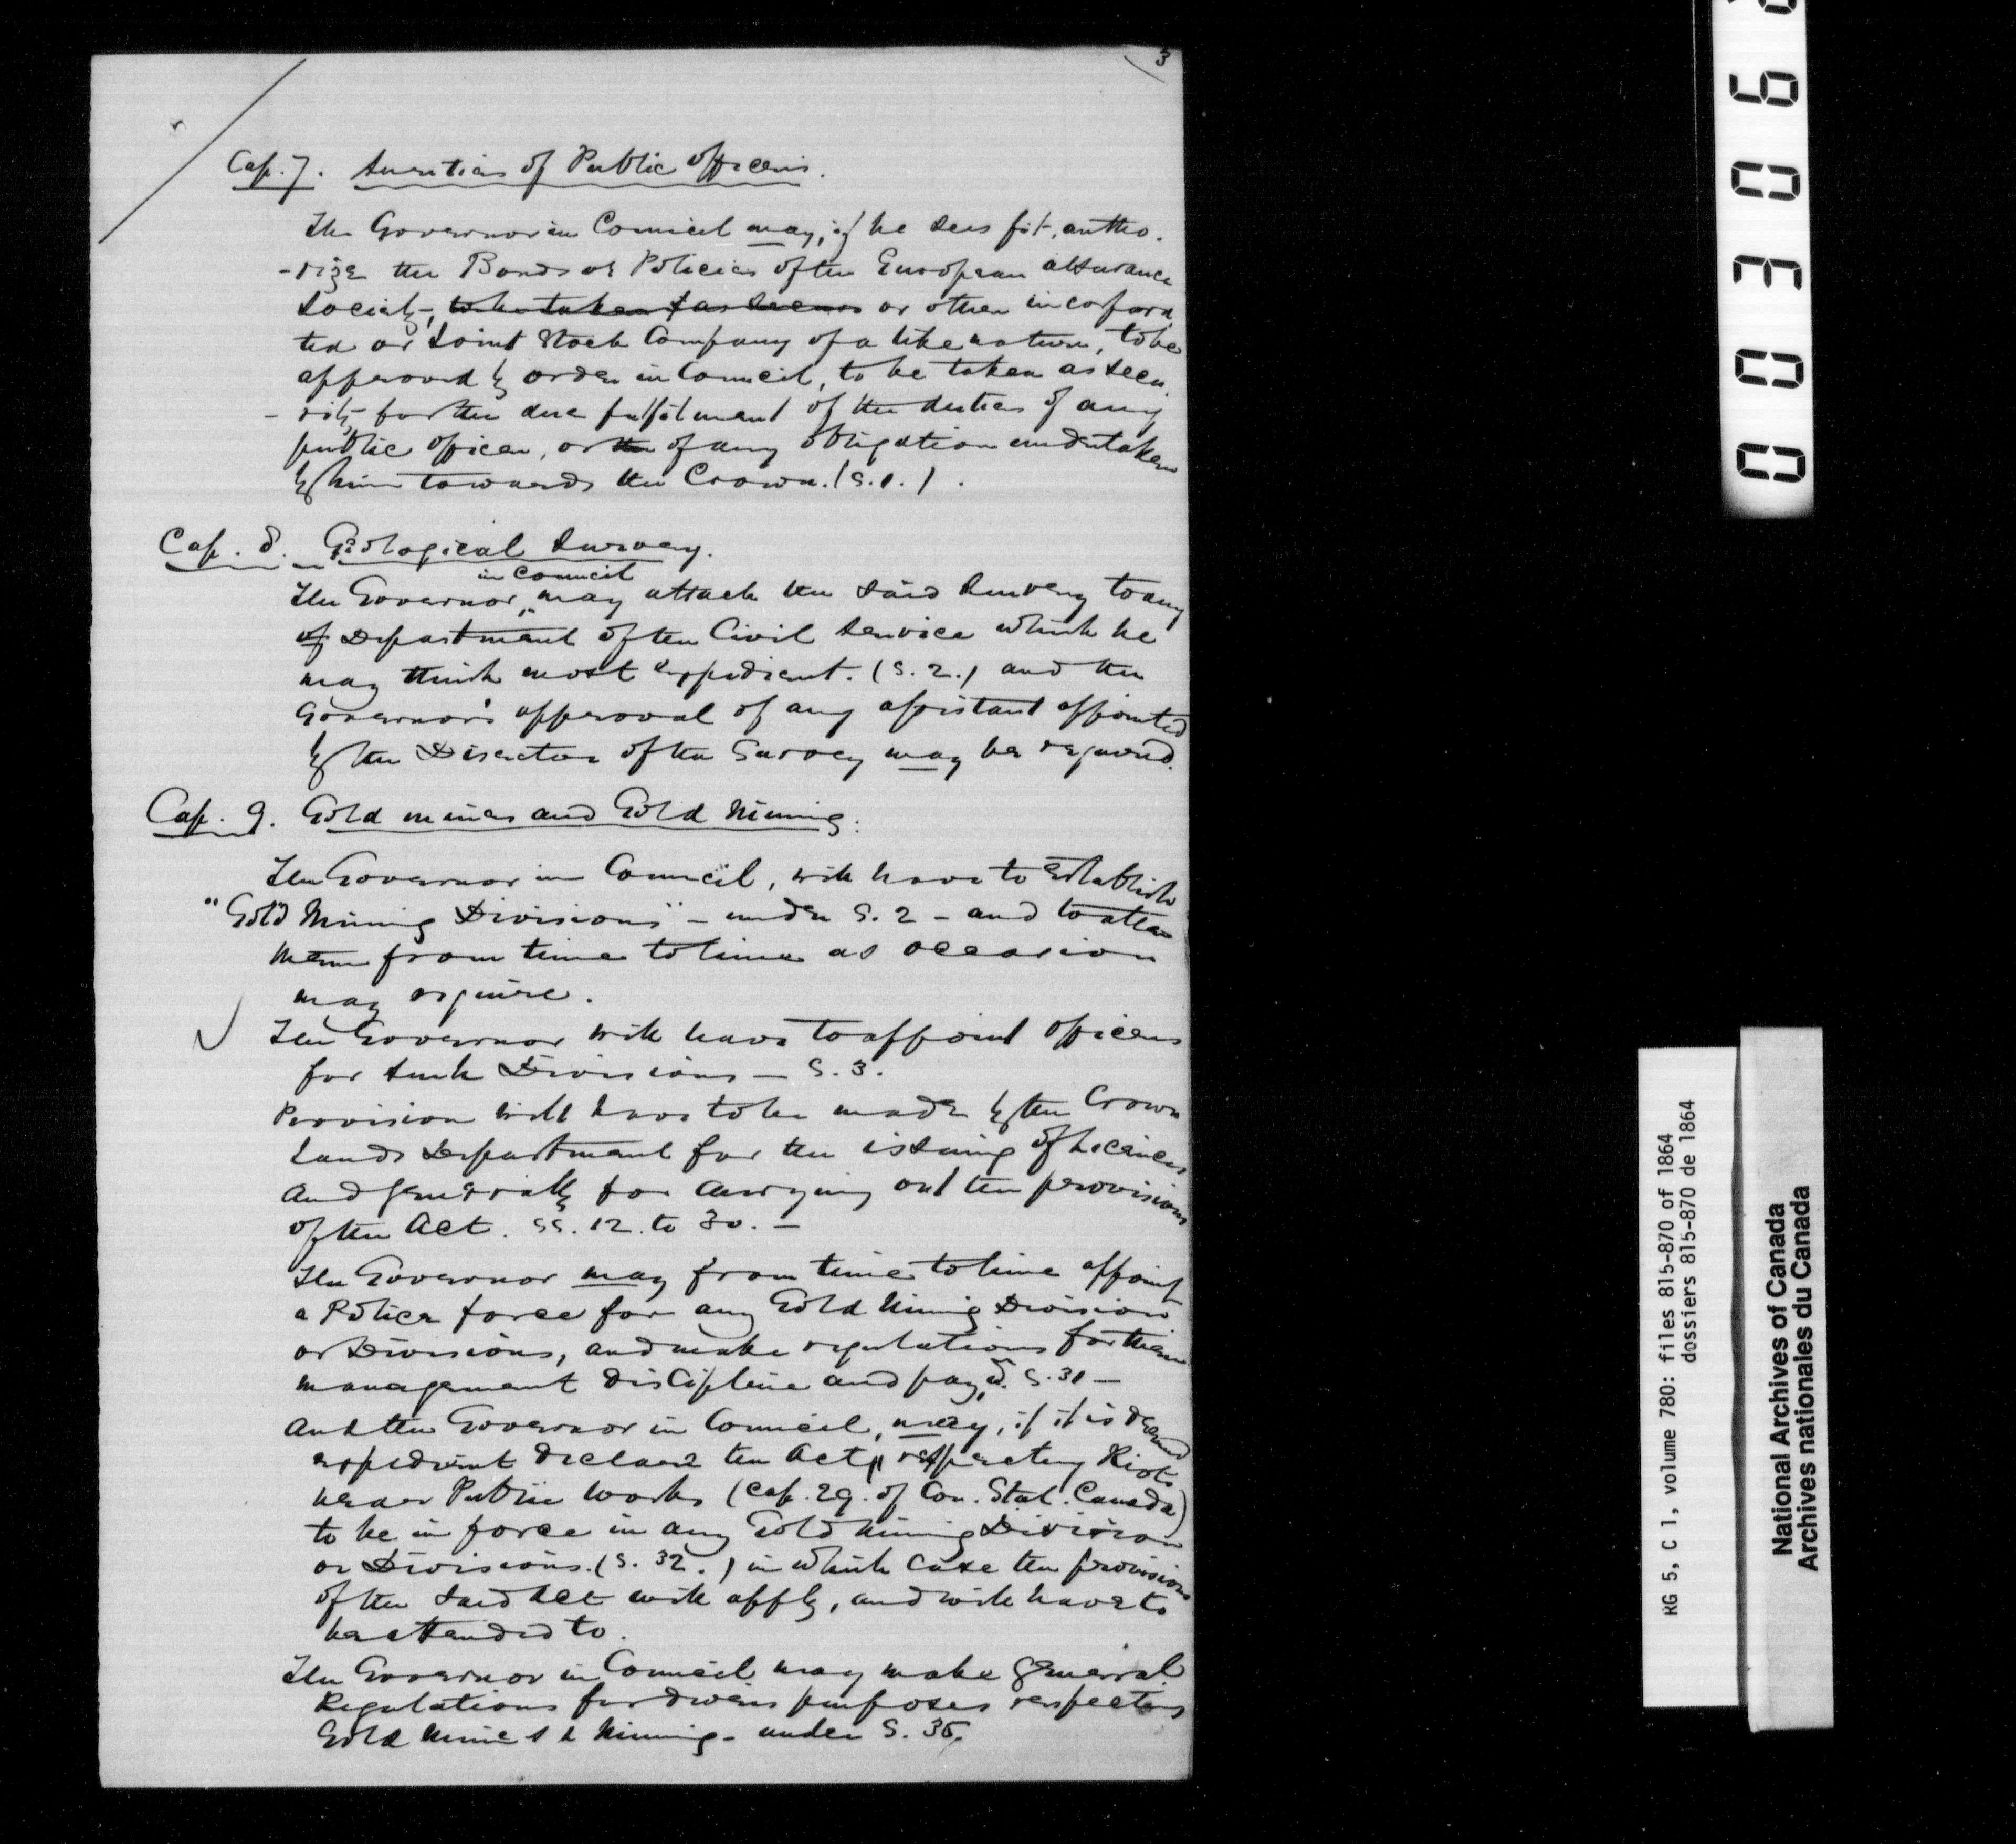 3
Cap. 7. Sureties of Public Officers.
The Governor in Council may, if he sees fit, autho-
-rize the Bonds or Policies of the European Assurance
Society, to be taken & as secur or other incorpora
ted or Joint Stock Company of a like nature, to be
approved by order in Council, to be taken as secu-
-rity for the due fulfilment of the duties of any
public officer, or the of any obligation undertaken
by him towards the Crown. (S. 1.).
Cap. 8. Geological Survey.
in Council
The Governor, may attach the said Survey to any
of Department of the Civil Service which he
may think most expedient. (S. 2.) and the
Governor's approval of any assistant appointed
by the Director of the Survey may be required.
Cap. 9. Gold mines and Gold Mining.
The Governor in Council, will have to establish
"Gold Mining Divisions" - under S. 2 - and to alter
them from time to time as occasion
may require.
The Governor will have to appoint officers
for such Divisions — S. 3.
Provision will have to be made by the Crown
Lands Department for the issuing of Licences
and generally for carrying out the provisions
of the Act. SS. 12. to 30. —
The Governor may from time to time appoint
a Police force for any Gold Mining Division
or Divisions, and make regulations for their
management discipline and pay, &. S. 31 —
And the Governor in Council, may, if it is deemed
expedient declare the Act, respecting Riots
near Public Works (Cap. 29. of Con. Stat. Canada)
to be in force in any Gold Mining Division
or Divisions. (S. 32.) in which case the provisions
of the said Act will apply, and will have to
be attended to.
The Governor in Council may make general
Regulations for divers purposes respecting
Gold Mines & Mining - under S. 35.
0030
RG 5, C 1, volume 780: files 815-870 of 1864
dossiers 815-870 de 1864
National Archives of Canada
Archives nationales du Canada